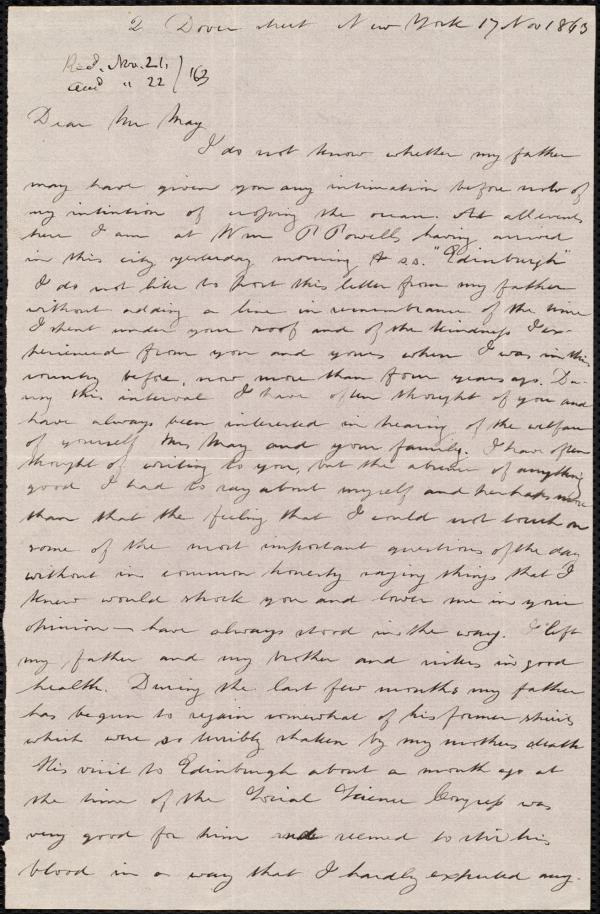 2 Dover street New York 17 Nov 1863
Recd. Nov. 21, / 63
ansd " 22
Dear Mr May
I do not know whether my father
may have given you any intimation before now of
my intention of crossing the ocean. At all events
here I am at Wm P Powells having arrived
in this city yesterday morning p s.s. "Edinburgh"
I do not like to post this letter from my father
without adding a line in remembrance of the time
I spent under your roof and of the kindness I ex-
perienced from you and yours when I was in this
country before, now more than four years ago. Du-
ring this interval I have often thought of you and
have always been interested in hearing of the welfare
of yourself Mrs May and your family. I have often
thought of writing to you, but the absence of anything
good I had to say about myself and perhaps more
than that the feeling that I could not touch on
some of the most important questions of the day
without in common honesty saying things that I
knew would shock you and lower me in your
opinion — have always stood in the way. I left
my father and my brother and sisters in good
health. During the last few months my father
has begun to regain somewhat of his former spirits
which were so terribly shaken by my mothers death
His visit to Edinburgh about a month ago at
the time of the Social Science Congress was
very good for him and seemed to stir his
blood in a way that I hardly expected any-